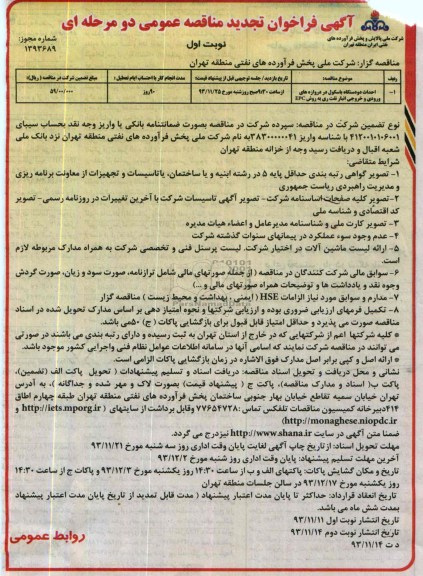 آگهی فراخوان تجدید مناقصه عمومی دو مرحله ای
شرکت ملی پالایش و پخش فرآورده های نفتی ایران منطقه تهران
نوبت اول
شماره مجوز:
۱۳۹۳۶۸۹
مناقصه گزار: شرکت ملی پخش فرآورده های نفتی منطقه تهران
ردیف موضوع مناقصه تاریخ بازدید / جلسه توجیهی قبل از پیشنهاد قیمت: مدت انجام کار با احتساب ایام تعطیل: مبلغ تضمین شرکت در مناقصه (ریال):
۱- احداث دو دستگاه باسکول در دروازه های ورودی و خروجی انبار نفت ری به روش EPC از ساعت ۹:۳۰ صبح روز شنبه مورخ ۹۳/۱۱/۲۵ ۹۰ روز
نوع تضمین شرکت در مناقصه: سپرده شرکت در مناقصه بصورت ضمانتنامه بانکی یا واریز وجه نقد بحساب سیبای
۴۱۲۰۰۰۱۰۶۰۰۱ با شناسه واریز به نام شرکت ملی پخش فرآورده های نفتی منطقه تهران نزد بانک ملی
شعبه اقبال و دریافت رسید وجه از خزانه منطقه تهران
شرایط متقاضی:
۱- تصویر گواهی رتبه بندی حداقل پایه ۵ در رشته ابنیه و یا ساختمان، یا تاسیسات و تجهیزات از معاونت برنامه ریزی
و مدیریت راهبردی ریاست جمهوری
۲- تصویر کلیه صفحات اساسنامه شرکت- تصویر آگهی تاسیسات شرکت با آخرین تغییرات در روزنامه رسمی- تصویر
کد اقتصادی و شناسه ملی
۳- تصویر کارت ملی و شناسنامه مدیرعامل و اعضاء هیات مدیره
۴- عدم وجود سوء عملکرد در پیمانهای سنوات گذشته شرکت
۵- ارائه لیست ماشین آلات در اختیار شرکت. لیست پرسنل فنی و تخصصی شرکت به همراه مدارک مربوطه لازم
است.
۶- سوابق مالی شرکت کنندگان در مناقصه (از جمله صورتهای مالی شامل ترازنامه، صورت سود و زیان، صورت گردش
وجوه نقد و یادداشت ها و توضیحات همراه صورتهای مالی و ...)
۷- مدارم و سوابق مورد نیاز الزامات HSE (ایمنی، بهداشت و محیط زیست) مناقصه گزار
۸- تکمیل فرمهای ارزیابی ضروری بوده و ارزیابی شرکتها و نحوه امتیاز دهی بر اساس مدارک تحویل شده در اسناد
مناقصه صورت می پذیرد و حداقل امتیاز قابل قبول برای بازگشایی پاکات (ج) ۵۰ می باشد.
* کلیه شرکتها اعم از شرکتهایی که در خارج از استان تهران به ثبت رسیده و دارای رتبه بندی می باشند در صورتی
می توانند در مناقصه شرکت نمایند که اسامی آنها در سامانه اطلاعات عوامل نظام فنی و اجرایی کشور موجود باشد.
* ارائه اصل و کپی برابر اصل مدارک فوق الاشاره در زمان بازگشایی پاکات الزامی است.
نشانی و محل دریافت و تحویل اسناد مناقصه: دریافت اسناد و تسلیم پیشنهادات (تحویل پاکت الف (تضمین)،
پاکت ب( اسناد و مدارک مناقصه)، پاکت ج ( پیشنهاد قیمت) بصورت لاک و مهر شده و جداگانه )، به آدرس
تهران خیابان سمیه تقاطع خیابان بهار جنوبی ساختمان پخش فرآورده های نفتی منطقه تهران طبقه چهارم اطاق
۴۱۴ دبیرخانه کمیسیون مناقصات تلفکس تماس: ۷۷۶۵۴۷۲۸ وقابل برداشت از سایتهای ( http://iets.mporg.ir و
http://monaghese.niopdc.ir)
ضمنا متن آگهی در سایت http://www.shana.ir نیز درج می گردد.
مهلت تحویل اسناد: از تاریخ چاپ آگهی لغایت پایان وقت اداری روز سه شنبه مورخ ۹۳/۱۱/۲۱
آخرین مهلت تسلیم پیشنهاد: پایان وقت اداری روز شنبه مورخ ۹۳/۱۲/۲
تاریخ و مکان گشایش پاکات: پاکتهای الف و ب از ساعت ۱۴:۳۰ روز یکشنبه مورخ ۹۳/۱۲/۳ و پاکات ج از ساعت ۱۴:۳۰
روز یکشنبه مورخ ۹۳/۱۲/۱۷ در سالن جلسات منطقه تهران
تاریخ انعقاد قرارداد: حداکثر تا پایان مدت اعتبار پیشنهاد ( مدت قابل تمدید از تاریخ پایان مدت اعتبار پیشنهاد
بمدت شش ماه می باشد.
تاریخ انتشار نوبت اول ۹۳/۱۱/۱۱
تاریخ انتشار نوبت دوم ۹۳/۱۱/۱۴
د ت ۹۳/۱۱/۱۴
روابط عمومی